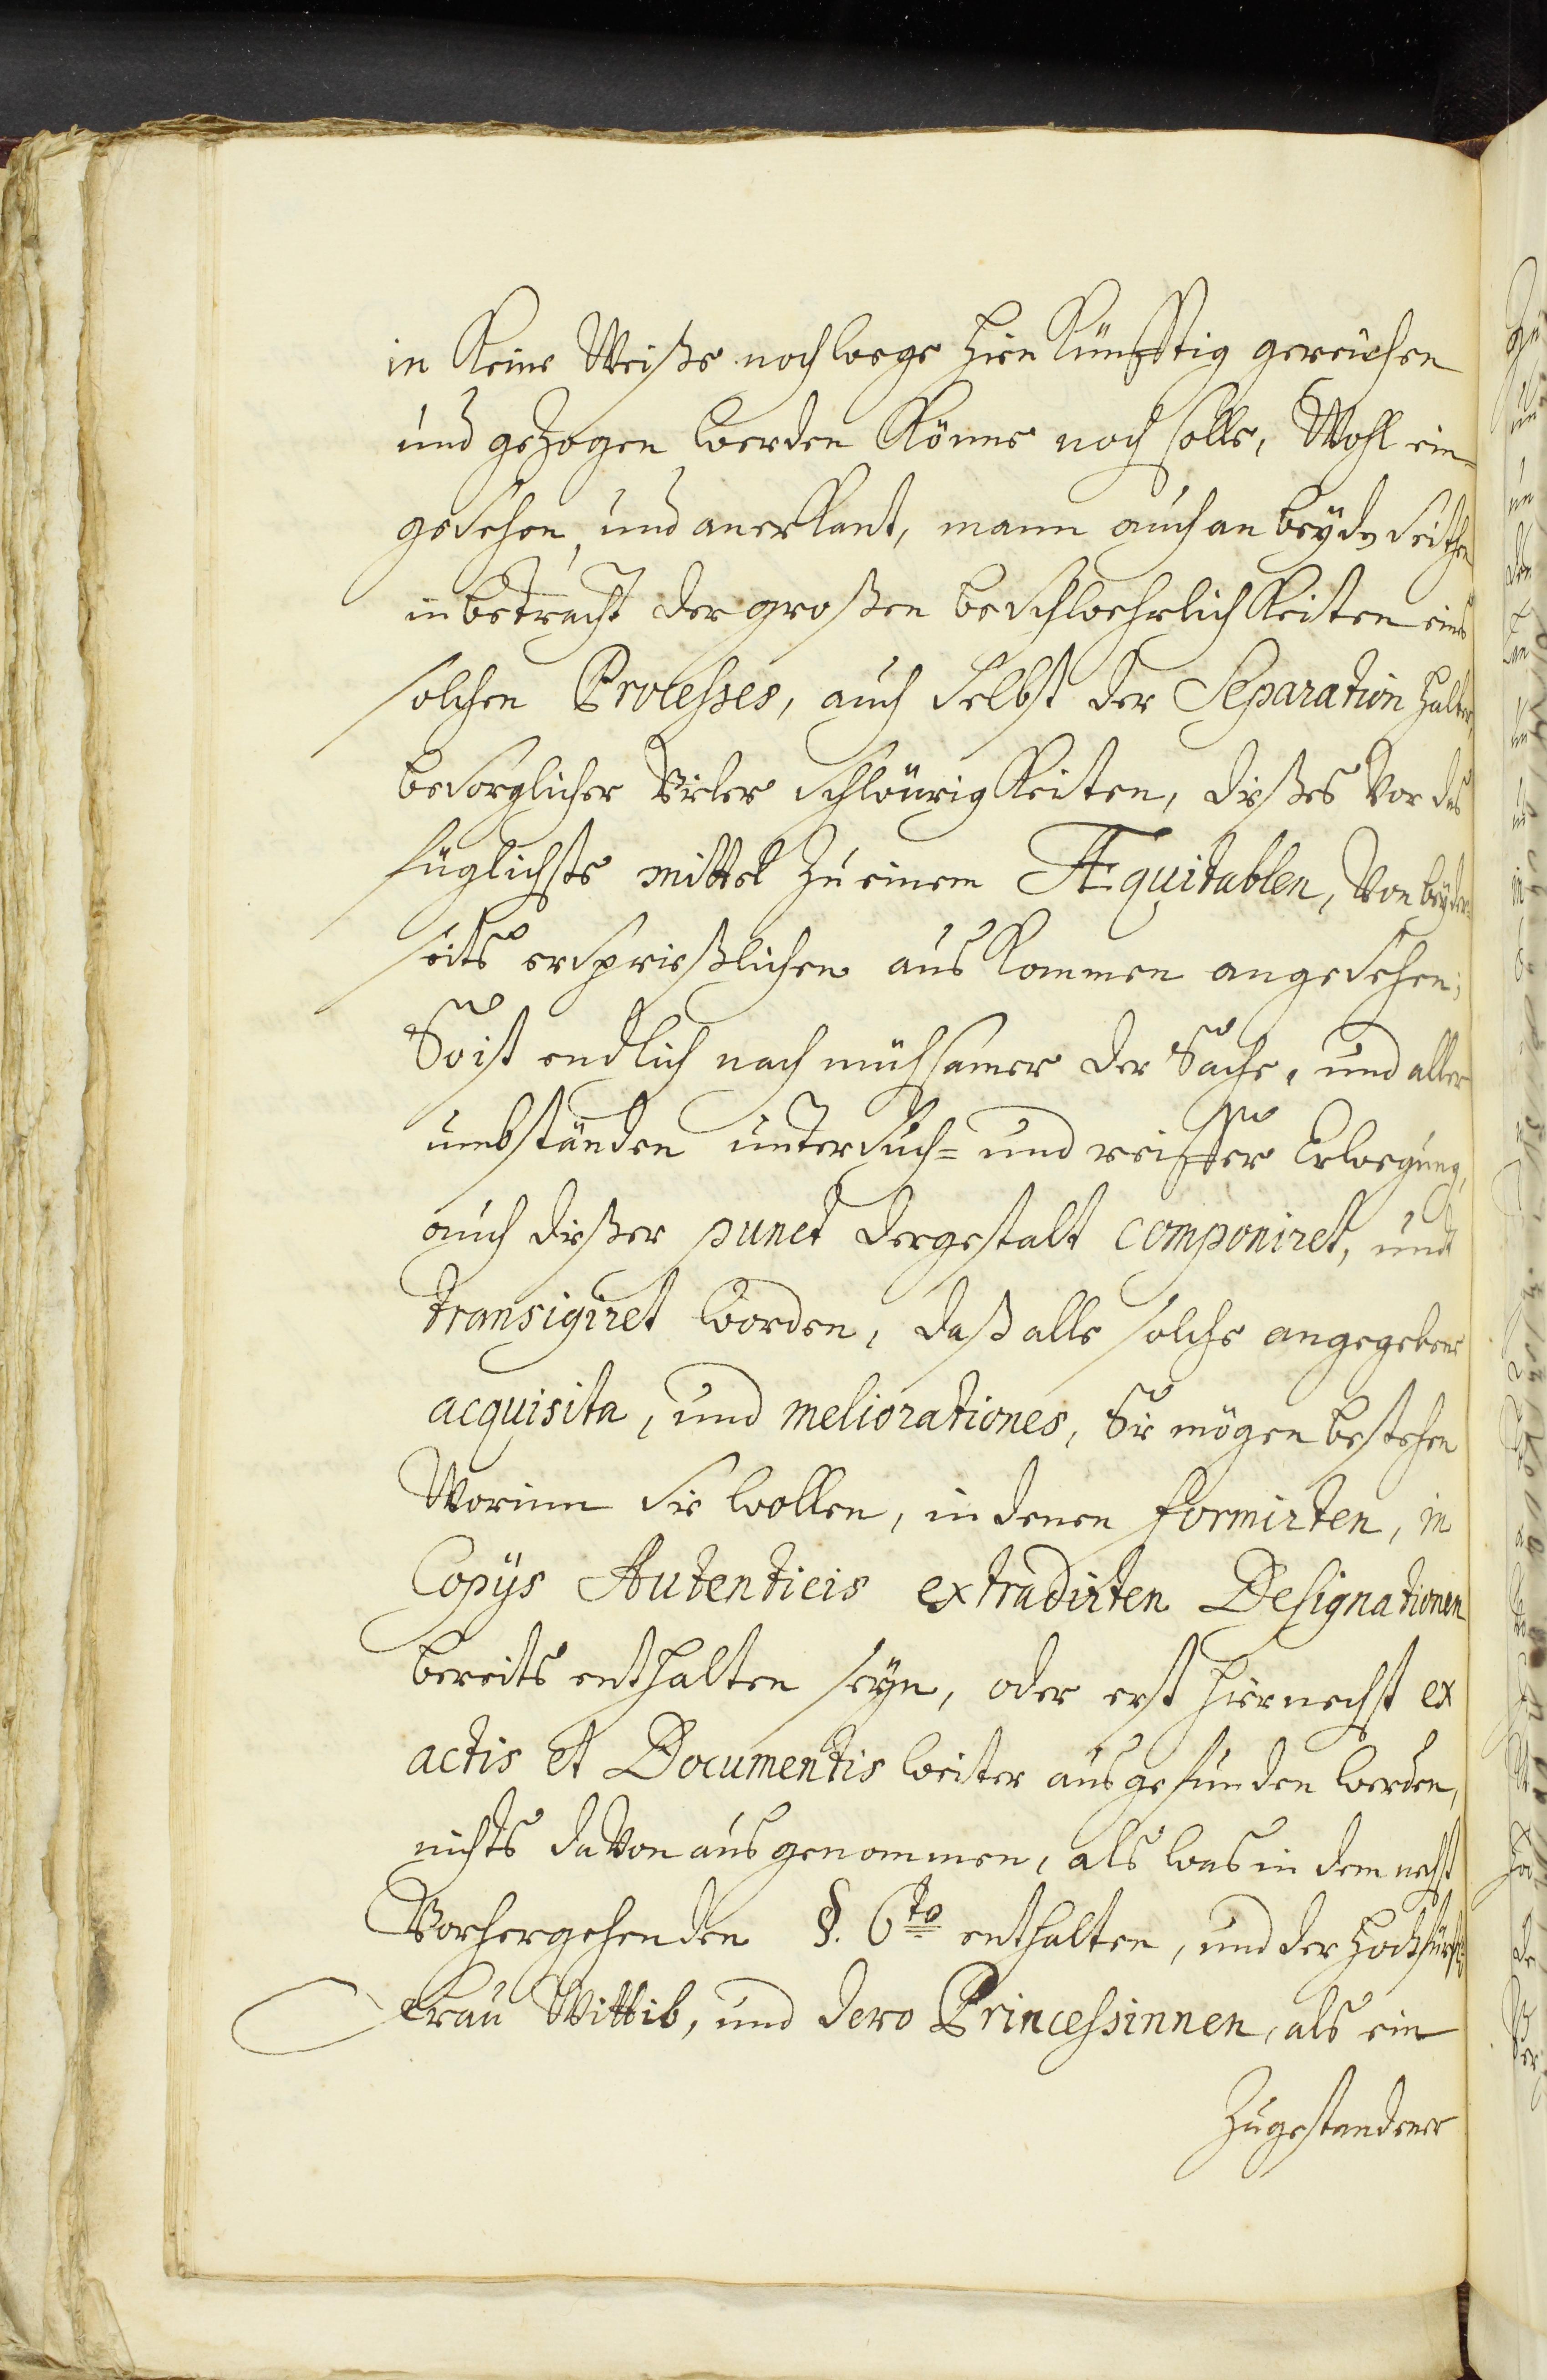 in keine Weiße noch wege hier künfftig gereichen
und gezogen werden könne noch solle, Wohl ein-
gesehen, und anerkant, mann auch an beyden seithen
in betracht der großen beschwehrlichkeiten eines
solchen Processes, auch selbst der Separation halber,
besorglicher vieler schwürigkeiten, dießes vor das
füglichste mittel zu einem AEquitablen, von beyder-
seits ersprießlichen auskommen angesehen;
So ist endlich nach mühsamer der Sache, und aller
umbständen untersuch- und reiffer Erwegung,
auch dießer punct dergestalt componiret, und
transigiret worden, daß alle solche angegebene
acquisita, und meliorationes, Sie mögen bestehen
Worinn sie wollen, in denen formirten, in
Copÿs Autenticis extradirten Designationen
bereits enthalten seyn, oder erst hiernechst ex
actis et Documentis weiter ausgefunden werden,
nichts davon ausgenommen, als was in dem nechst
Vorhergehenden §. 6to enthalten, und der Hochfürstl.
Frau Wittib, und dero Princessinnen, als ein
Zugestandener